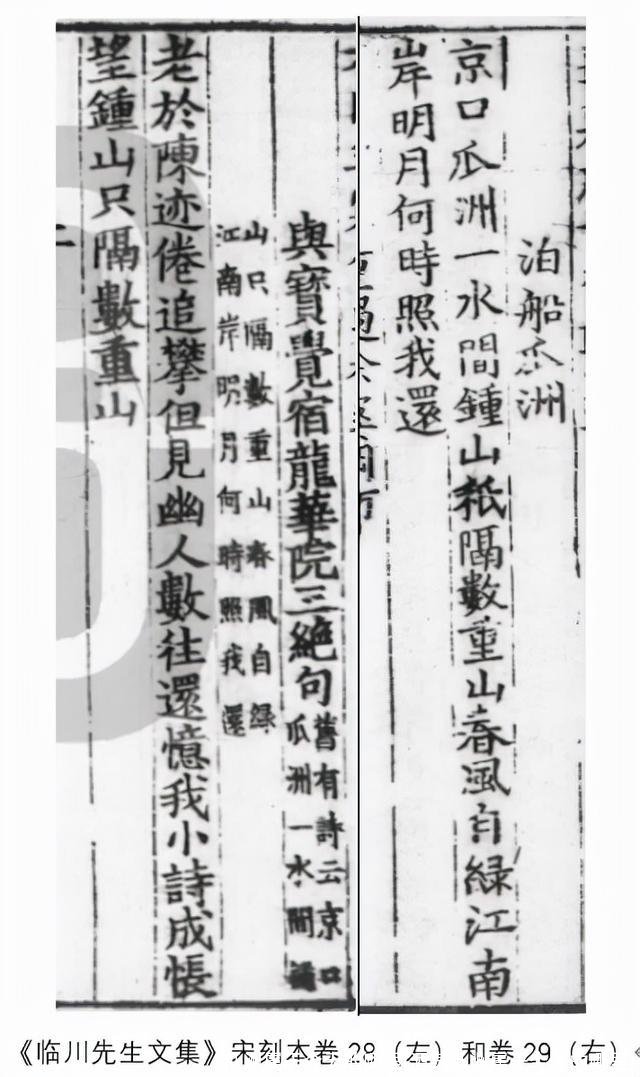 泊船瓜洲
京口瓜洲一水間鍾山秖隔數重山春風自綠江南
岸明月何時照我還
與寶覺宿龍華院三絕句
舊有詩云京口
瓜洲一水間鍾
山只隔數重山春風自綠
江南岸明月何時照我還
老於陳迹倦追攀但見幽人數往還憶我小詩成悵
望鍾山只隔數重山
《临川先生文集》宋刻本卷28（左）和卷29（右）